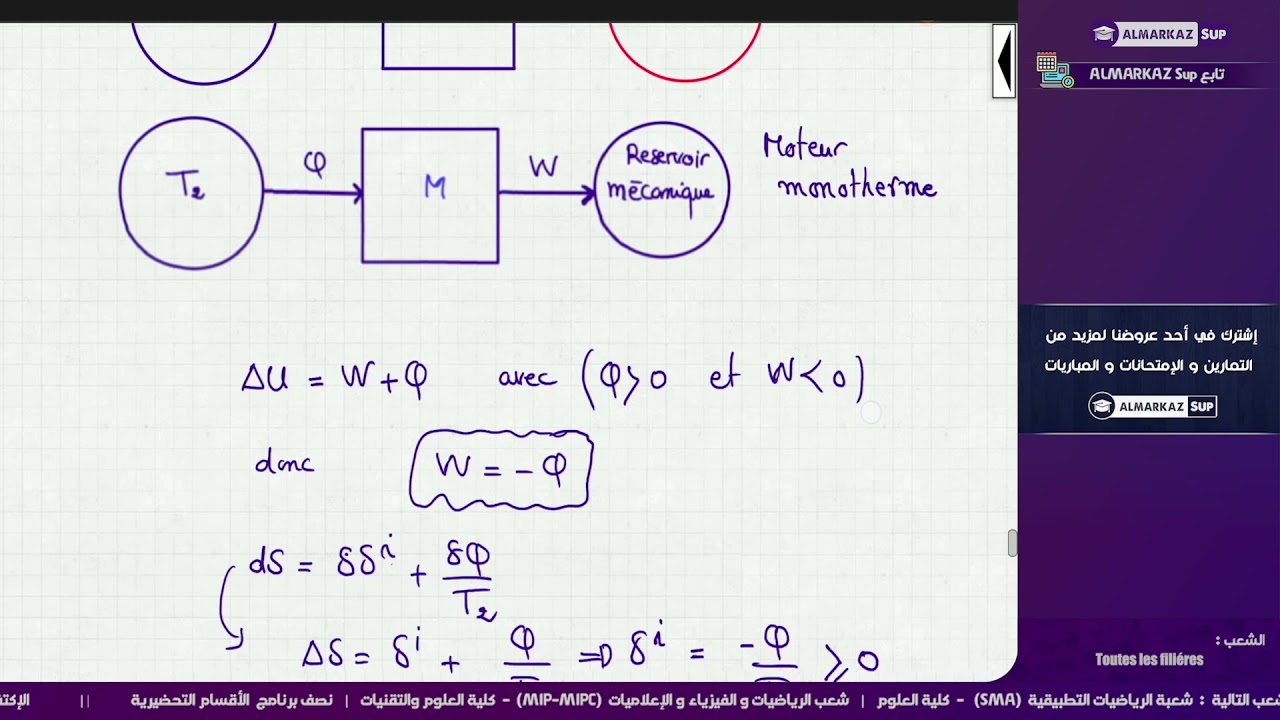 ALMARKAZ SUP
تابع ALMARKAZ Sup
T₂
φ
M
W
Reservoir
mécanique
Moteur
monotherme
ΔU = W + φ avec (φ > 0 et W < 0)
donc W = - φ
dS = δS^i + δφ/T₂
ΔS = S^i + φ/ ⇒ S^i = -φ/ ⩾ 0
إشترك في أحد عروضنا لمزيد من
التمارين و الإمتحانات و المباريات
ALMARKAZ SUP
الشعب :
Toutes les filiéres
عب التالية : شعبة الرياضيات التطبيقية (SMA) - كلية العلوم | شعب الرياضيات و الفيزياء و الإعلاميات (MIP-MIPC) - كلية العلوم والتقنيات | نصف برنامج الأقسام التحضيرية ||